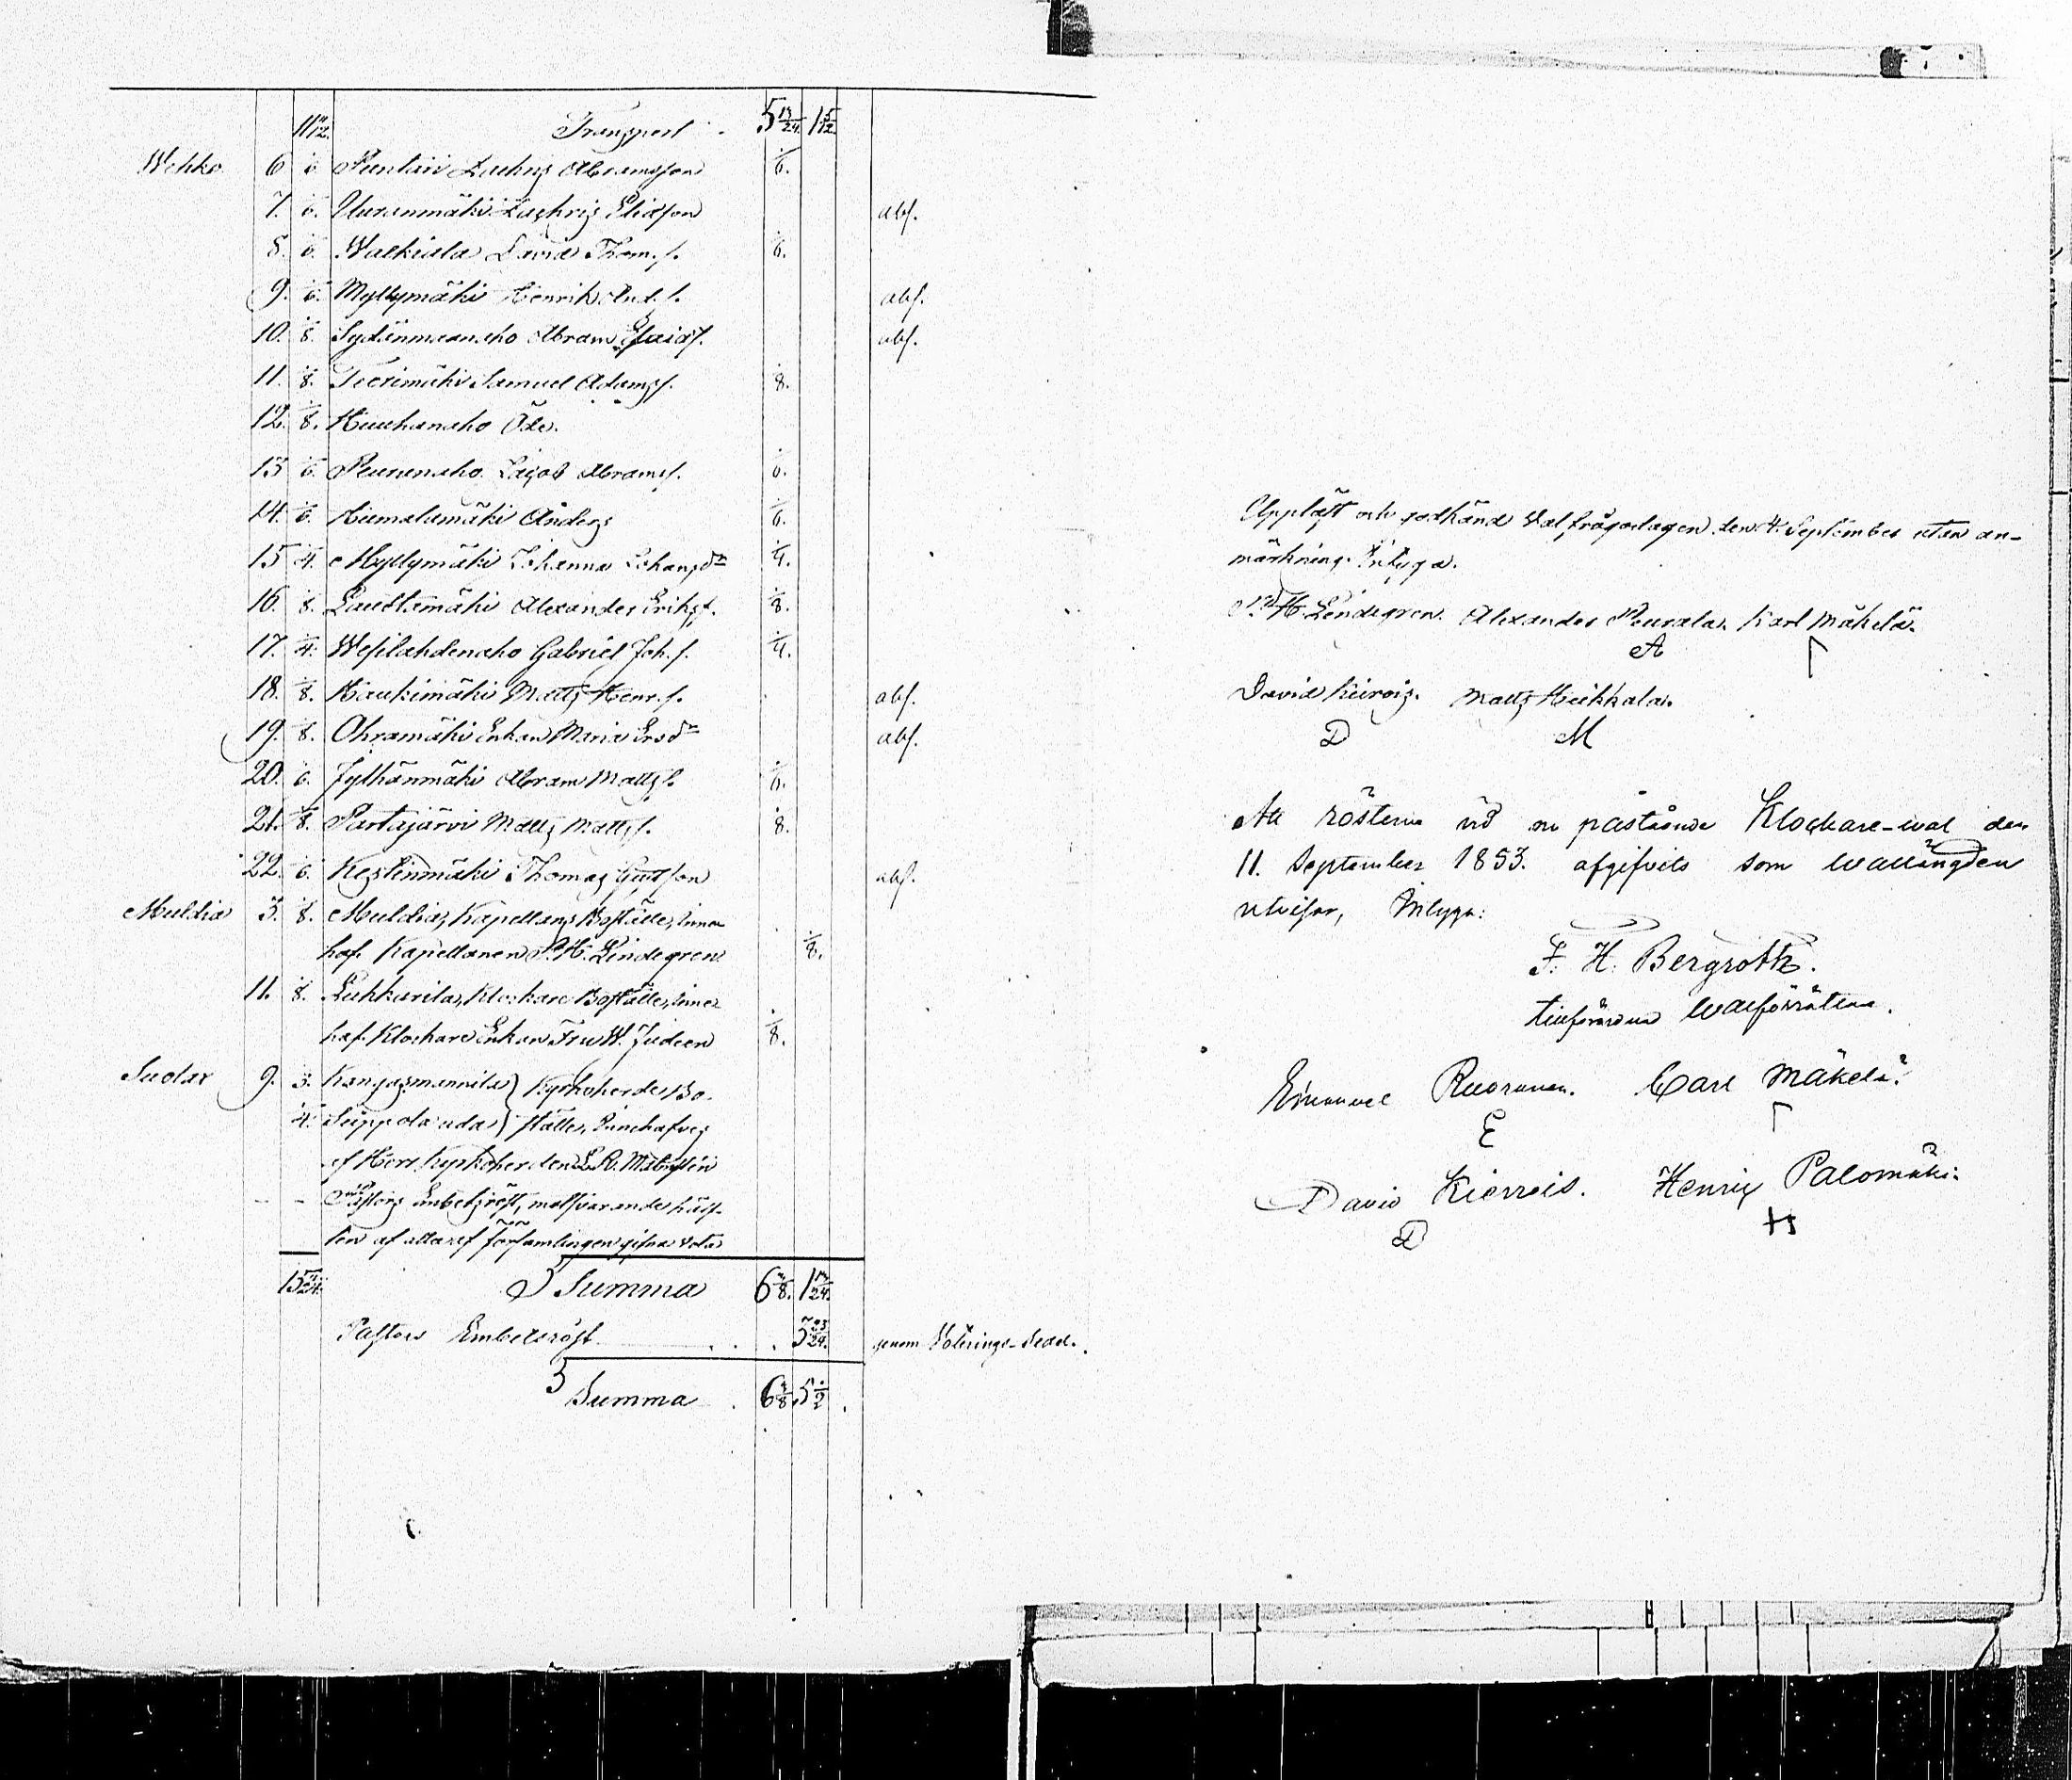 11 11/12. Transport 5 13/24. 1 5/12.
Wehko 6 1/6 Puntari Zachris Abramsson 1/6.
7. 1/6. Uuranmäki Zachris Eliasson abs.
8. 1/6. Walkiala David Thom. s. 1/6.
9. 1/6. Myllymäki Henrik And. s. abs.
10. 1/8. Sydänmaanaho Abram Esaias. abs.
11. 1/8. Teerimäki Samuel Adams s. 1/8.
12. 1/8. Huuhanaho Öde.
13 1/6. Peuranaho Jacob Abrams s. 1/6.
14. 1/6. Aumalamäki Anders 1/6.
15 1/4. Myllymäki Johanna Johansdr 1/4.
16. 1/8. Lauttamäki Alexander Eriks s. 1/8.
17. 1/4. Wesilahdenaho Gabriel Joh. s. 1/4.
18. 1/8. Haukimäki Matts Henr. s. abs.
19. 1/8. Ohramäki Enkan Maria Ersdr abs.
20. 1/6. Jylhänmäki Abram Matts s. 1/6.
21. 1/8. Partajärvi Matts Matts s. 1/8.
22. 1/6. Kestinmäki Thomas Gustsson abs.
Muldia 3. 1/8. Muldias, Kapellans Boställe, inne
haf. Kapellanen P. H. Lindegren 1/8.
11. 1/8. Luhkurila, Klockare Boställe, inne
haf. Klockare Enkan Fru W. Judeen 1/8.
Suolax 9. 1/3. Kangasmannila Kyrkoherde Bo-
1/4. Seippola uda ställe, innehafves
af Herr Kyrkoherden L. R. Malmstén
- - Pastors Embetsröst, motsvarande hälf-
ten af alla af församlingen gifna vota
Summa 6 7/8. 1 13/24.
Pastors Embetsröst 3 23/24. genom Voterings-Sedel.
Summa 6 7/8. 5 1/2.
Uppläst och godkänd Valfrågodagen den 4 September utan an-
märkning. Intyga.
P. H. Lindegren. Alexander Peurala. Karl Mäkelä.
A
David Keirois. Matts Heikkala.
D M
Att rösterne vid nu påstående Klockare-wal den
11. September 1853. afgifvits som Wallängden
utvisar, Intyga:
F. H. Bergroth.
tillförordnad Walförrättare.
Emanuel Ruoranen. Carl Mäkelä
E
David Kierreis. Henrix Palomäki.
D H